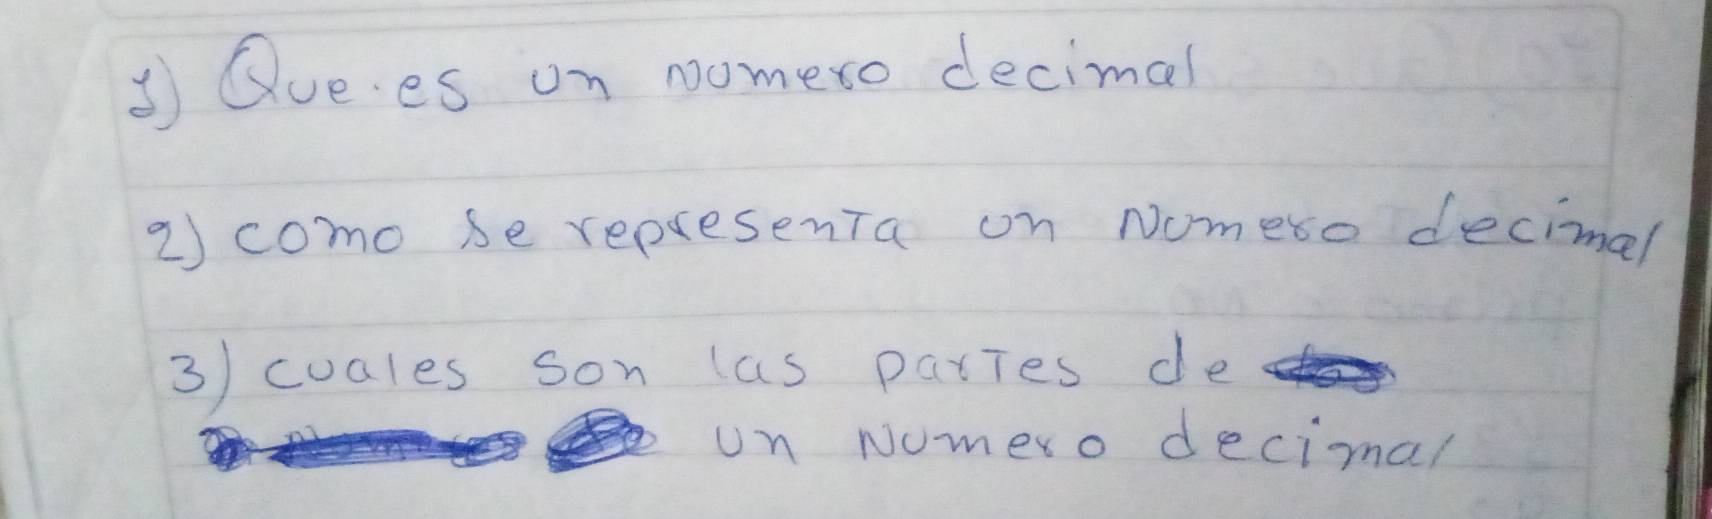 1) Que es un numero decimal
2) como se representa un Numero decimal
3) cuales son las partes de
un Numero decimal